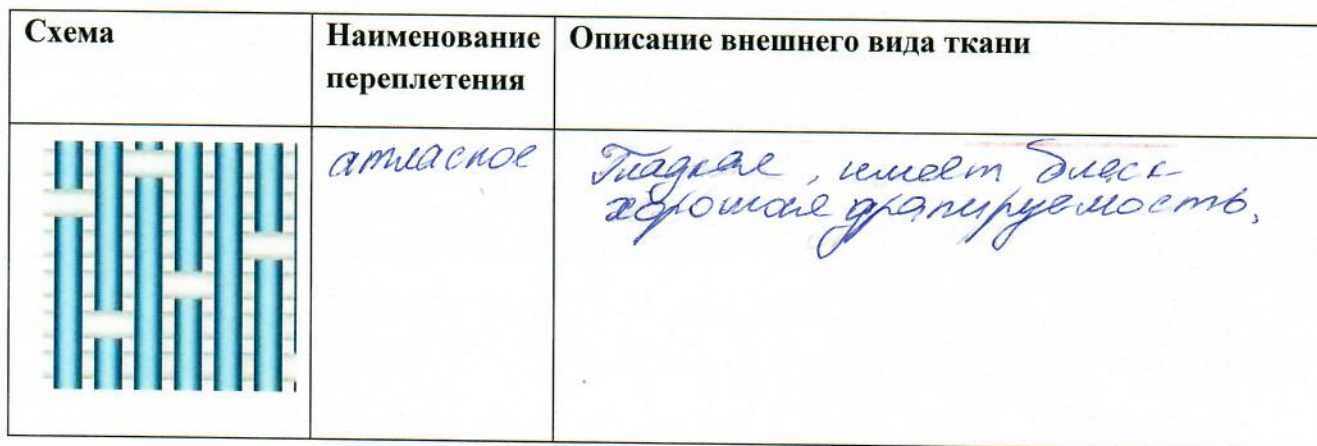 Схема
Наименование
переплетения
Описание внешнего вида ткани
атласное
Гладкая, имеет блеск
хорошая драпируемость,